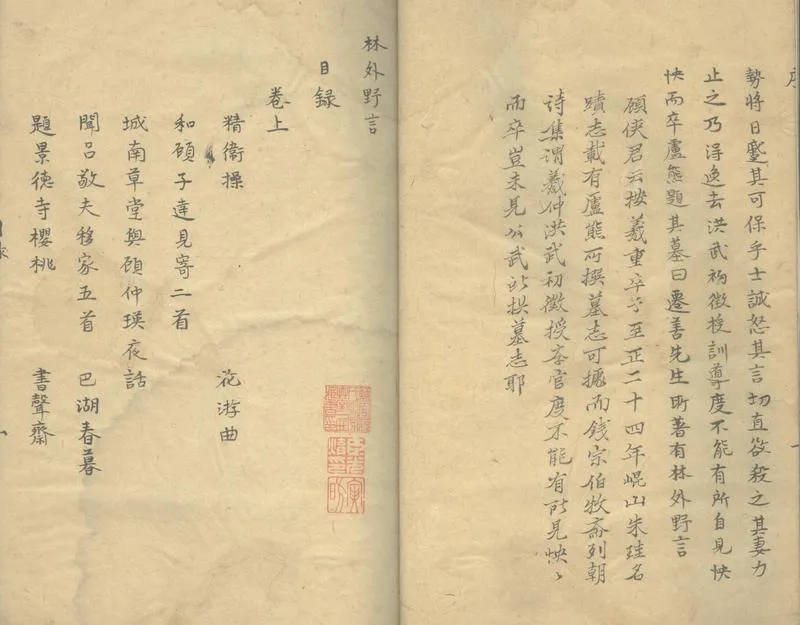 序
勢將日蹙其可保乎士誠怒其言切直欲殺之其妻力
止之乃得逸去洪武初徵授訓導度不能有所自見怏
怏而卒盧熊題其墓曰遷善先生所著有林外野言
顧俠君云按羲重卒于至正二十四年崐山朱珪名
蹟志載有盧熊所撰墓志可據而錢宗伯牧斋列朝
诗集谓羲仲洪武初徵授李官度不能有所見怏〻
而卒豈未見公武所撰墓志耶
林外野言
目録
卷上
精衛操 花游曲
和碩子達見寄二首
城南草堂與顧仲瑛夜話
聞呂敬夫移家五首 巴湖春暮
題景德寺櫻桃 書聲齋